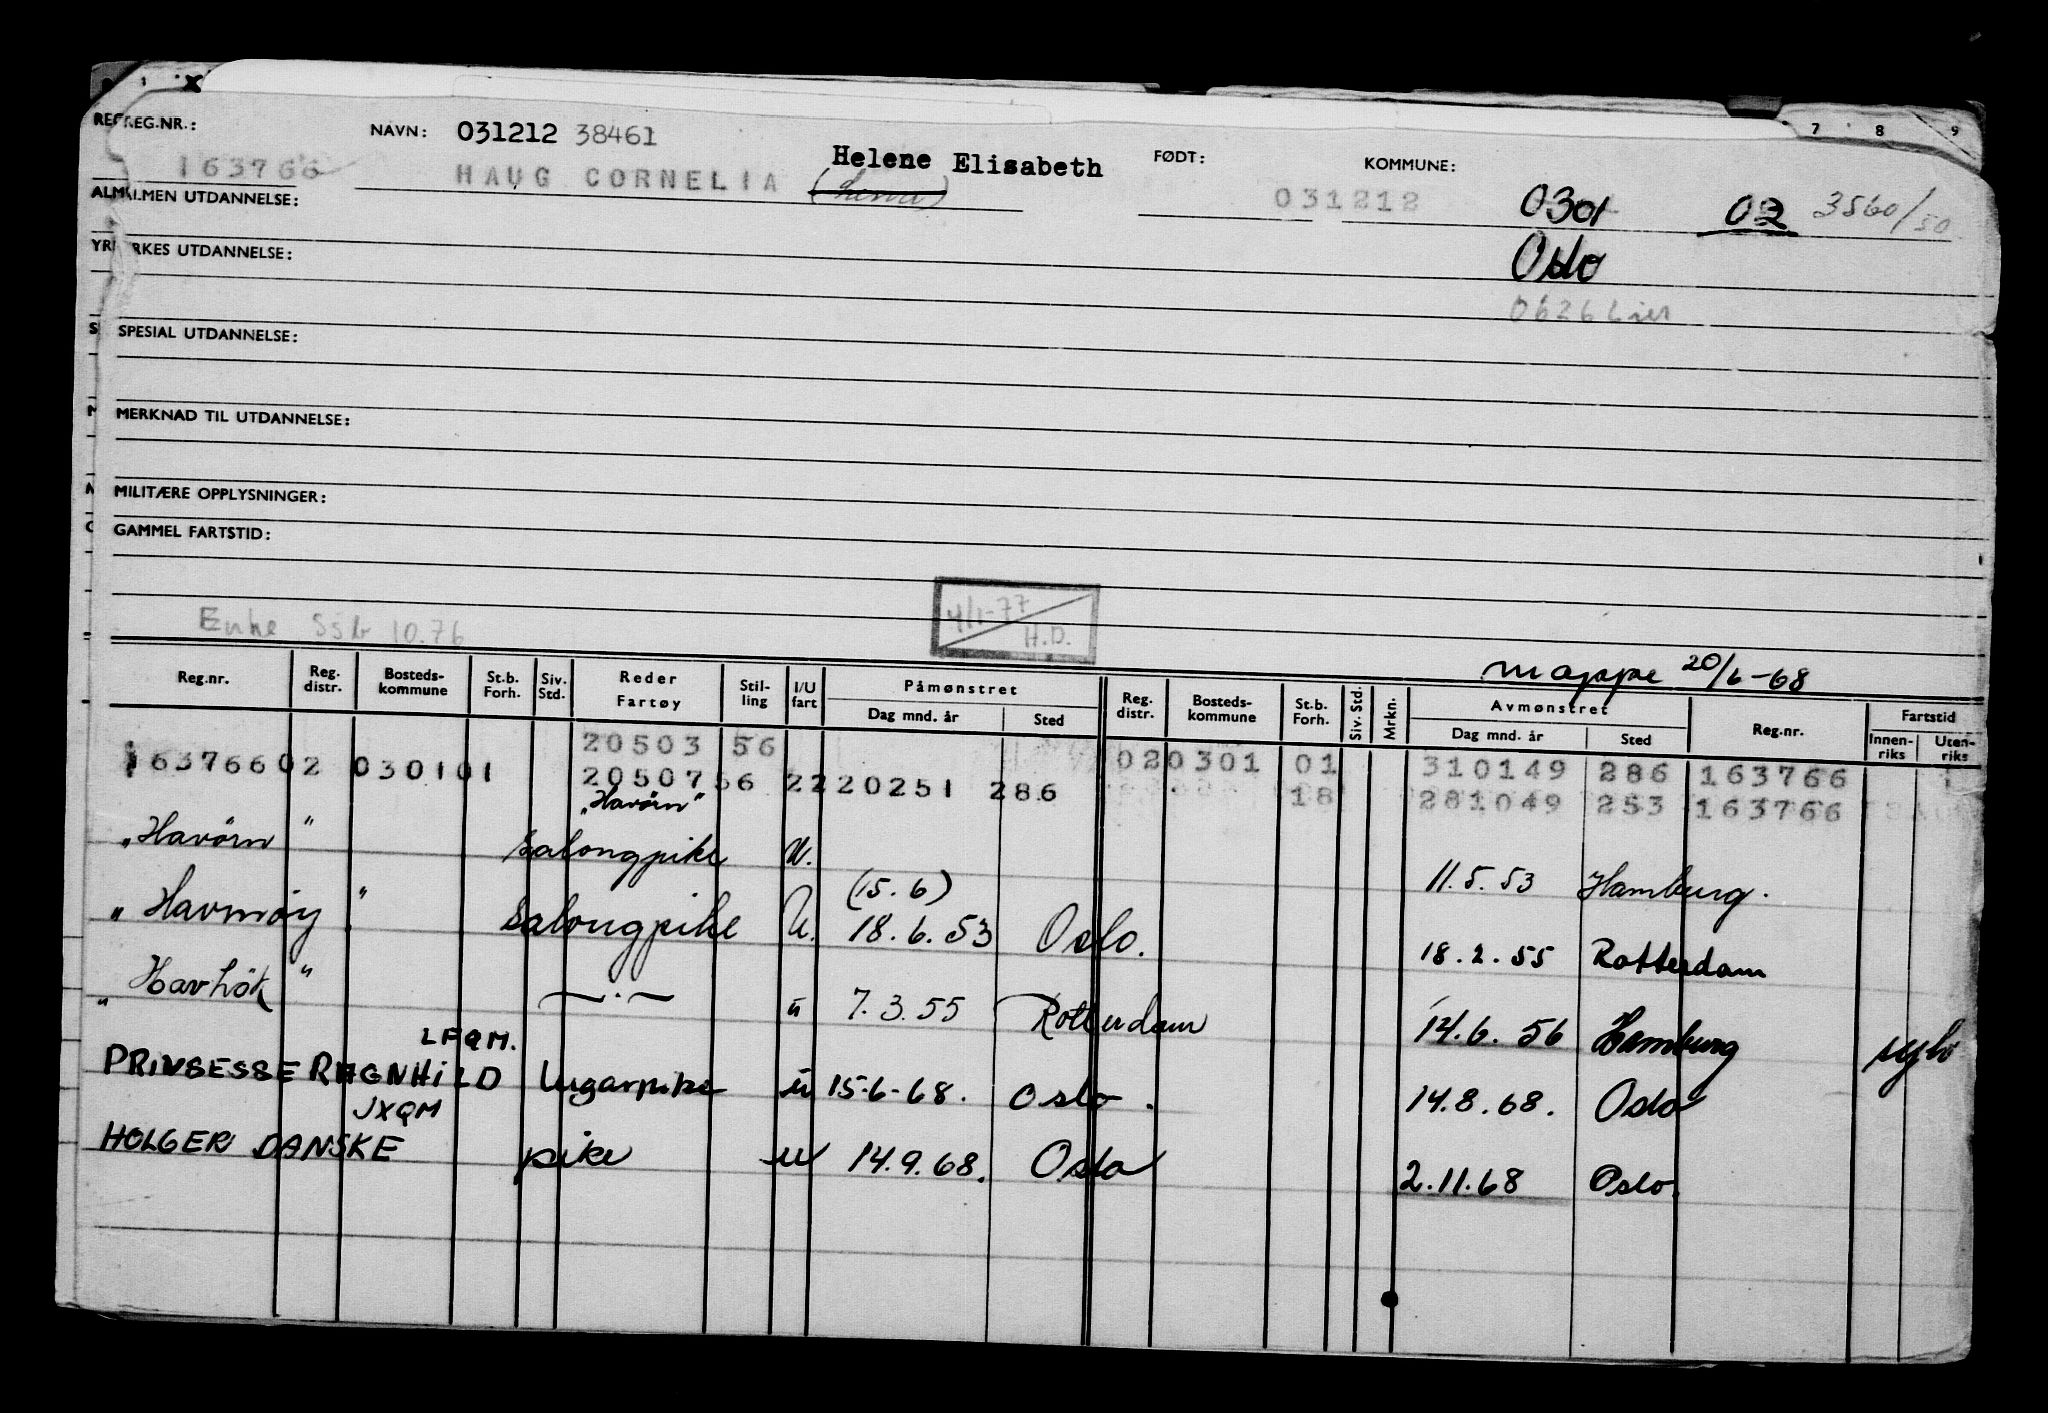 REG.NR.: NAVN: 031212 38461 FØDT: KOMMUNE:
163766 HAUG CORNELIA Helene Elisabeth 031212 0301 02 3560/50
ALMEN UTDANNELSE: Oslo
YRKES UTDANNELSE: 0626 Lier
SPESIAL UTDANNELSE:
MERKNAD TIL UTDANNELSE:
MILITÆRE OPPLYSNINGER:
GAMMEL FARTSTID:
4/1-77
Enke SSB 10.76 H.D.
mappe 20/6-68
Reg.nr. Reg. distr. Bosteds-kommune St.b. Forh. Siv. Std. Reder Fartøy Stil-ling I/U fart Påmønstret Dag mnd. år Sted Reg. distr. Bosteds-kommune St.b. Forh. Siv. Std. Mrkn. Avmønstret Dag mnd. år Sted Reg.nr. Fartstid Innen-riks Uten-riks
20503 56 020301 01 310149 286 163766
16376602 030101 20507 56 22 20251 286 18 281049 253 163766
"Havörn"
"Havörn" salongpike U. 11.5.53 Hamburg.
(15.6)
"Havmöy" salongpike U. 18.6.53 Oslo. 18.2.55 Rotterdam
"Havhök" —·— " 7.3.55 Rotterdam 14.6.56 Hamburg
LFQM.
PRINSESSE RAGNHILD lugarpike u 15-6-68. Oslo. 14.8.68. Oslo
JXQM
HOLGER DANSKE pike u 14.9.68. Oslo 2.11.68 Oslo.